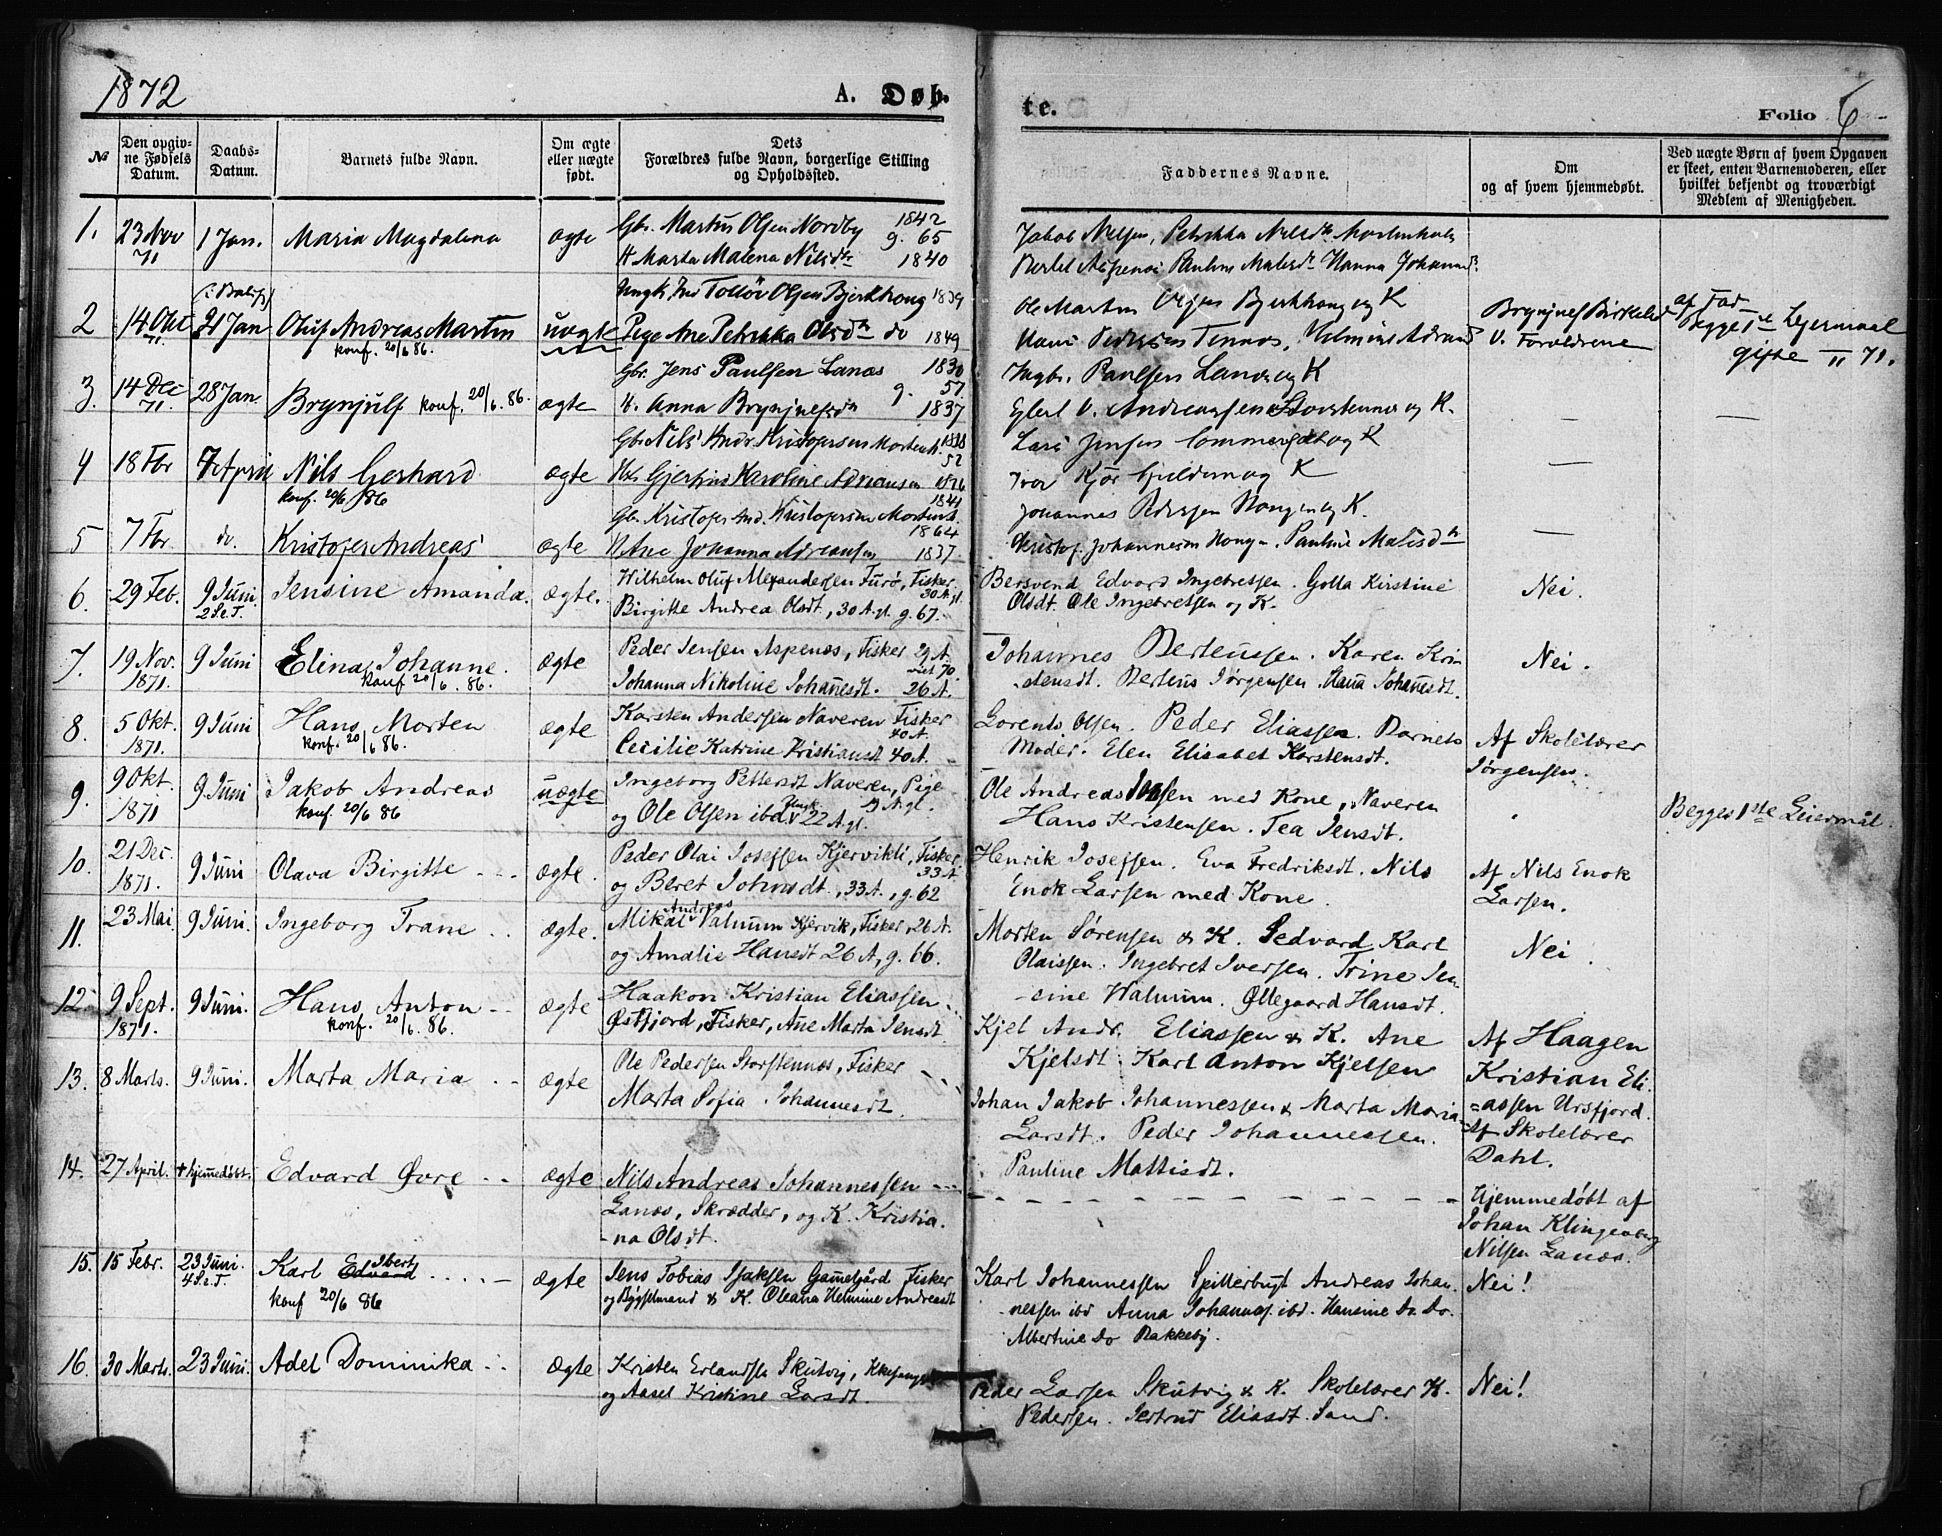 1872
A. Døb-
te.
Folio 6
№
Den opgiv-
ne Fødsels
Datum.
Daabs-
Datum.
Barnets fulde Navn.
Om ægte
eller uægte
født.
Dets
Forældres fulde Navn, borgerlige Stilling
og Opholdssted.
Faddernes Navne.
Om
og af hvem hjemmedøbt.
Ved uægte Børn af hvem Opgaven
er skeet, enten Barnemoderen, eller
hvilket bekjendt og troværdigt
Medlem af Menigheden.
1. 23 Nov 71 1 Jan. Maria Magdalena ægte
Gbr. Martus Olsen Nordby 1842
g. 65
H Marta Malena Nilsdtr 1840
Jakob Nelsen, Petrikka Nilsdtr
Bertel Aspenes Pauline Matisdtr Hanna Johannsd.
2 14 Okt 71 21 Jan Oluf Andreas Martin uægte
konf. 20/6 86.
Olsen Bjerkhoug 1839
Pige Ane Petrikka Olsdtr do 1849
Ole Martin Olsen Bjerkhoug og K
Hans Pedersen
Brynjulf Birkeland
v. Forældrene
af Fad
Begge 1ste Lejermaal
gifte 71.
3. 14 Dec 71. 28 Jan. Brynjulf konf. 20/6. 86. ægte
Gbr. Jens Paulsen Lanæs 1830
g. 57.
H. Anna Brynjuefsdtr 1837
Ingbr. Paulsen Lanæs og K
Egbert O. Andreassen Storstennes og K.
4 18 Fbr 7 April Nils Gerhard ægte
konf. 20/6 86
Gbr Nils Andr Kristofersen
52
Gjertine Karoline Adriansen 1826
Lars Jensen Sommersæt og K
Iver Kjær Gjelderen og K
5 7 Fbr do. Kristofer Andreas ægte
1841
Gb. Kristofer And. Kristofersen
1864
H Ane Johanna Adreansen 1837
Johannes Pedersen Hongen og K.
Kristof. Johannesen Pauline Matisdtr
6. 29 Feb. 9 Juni 2 S. e. T. Jensine Amanda. ægte.
Wilhelm Oluf Alexandersen Furø, Fisker 30 A. gl.
Birgitte Andrea Olsdt, 30 A. gl. g. 67.
Bersvend Edvard Ingebretsen. Golla Kirstine
Olsdt. Ole Ingebretsen og K.
Nei.
7. 19 Nov. 1871. 9 Juni Elina Johanne. ægte
konf 20/6. 86.
Peder Jensen Aspenæs, Fisker 29 A.
70.
Johanna Nikoline Johanesdt. 26 A.
Johannes Bertenssen. Karen Kri-
stensdt. Bertens Jørgensen. Hana Johanesdt.
Nei.
8. 5 Okt. 1871. 9 Juni Hans Morten ægte
konf. 20/6 86.
Karsten Andersen Naveren Fisker
40 A.
Cecilie Katrine Kristiansdt 40 A.
Lorents Olsen. Peder Eliassen. Barnets
Moder. Elen Elisabet Karstensdt.
Af Skolelærer
Jørgensen.
9. 9 Okt. 1871 9 Juni Jakob Andreas uægte
konf. 20/6 86
Ingeborg Pettersdt Naveren, Pige
19 A. gl.
og Ole Olsen ibd. Ungk. 22 A. gl.
Ole Andreas Jonsen med Kone, Naveren
Hans Kristensen. Tea Jensdt.
Begges 1ste Leiermål.
10. 21 Dec. 1871. 9 Juni Olava Birgitte ægte.
Peder Olai Josefsen Kjervikli, Fisker
33 A.
og Beret Johnsdt, 33 A., g. 62
Henrik Josefsen. Eva Fredriksdt. Nils
Enok Larsen med Kone.
Af Nils Enok
Larsen.
11. 23 Mai 9 Juni. Ingeborg Trane ægte.
Mikal Andreas Valnum Kjervik, Fisker, 26 A.
og Amalie Hansdt 26 A, g. 66.
Morten Sørensen & K. Sedvard Karl
Olaissen. Ingebret Iversen. Trine Jen-
sine Walnum. Ollegaard Hansdt.
Nei.
12. 9 Sept. 1871. 9 Juni. Hans Anton ægte
konf. 20/6. 86.
Haakon Kristian Eliassen
Østfjord, Fisker, Ane Marta Jensdt.
Kjel Andr. Eliassen & K. Ane
Kjelsdt. Karl Anton Kjelsen
Af Haagen
Kristian Eli-
assen Ursfjord.
13. 8 Marts. 9 Juni. Marta Maria ægte
Ole Pedersen Storstennæs, Fisker
Marta Sofia Johannesdt.
Johan Jakob Johannessen & Marta Maria
Larsdt. Peder Johannessen.
Pauline Mattisdt.
Af Skolelærer
Dahl.
14. 27 April. + hjemmedøbt. Edvard Øvre ægte
Nils Andreas Johannessen
Lanæs, Skrædder, og K. Kristia-
na Olsdt.
Hjemmedøbt af
Johan Klingenberg
Nilsen Lanæs.
15. 15 Febr. 23 Juni. 4 S. e. T Karl Edvard Ibert ægte
konf 20/6 86
Jens Tobias Isaksen Gammelgård Fisker
og Bygselmand & K. Oleana Helmine Andreasdt
Karl Johannessen Spitterbugt Andreas Johan-
nessen ibd Anna Johannes. ibd. Hansine Do Do.
Albertine Do Bakkeby.
Nei!
16. 30 Marts. 23 Juni. Adel Dominika ægte
Kristen Erlandsen Skutvig,
og Aasel Kristine Larsdt.
Peder Larsen Skutvig & K. Skolelærer K.
Pedersen. Jertrud Eliasdt. Sand.
Nei!